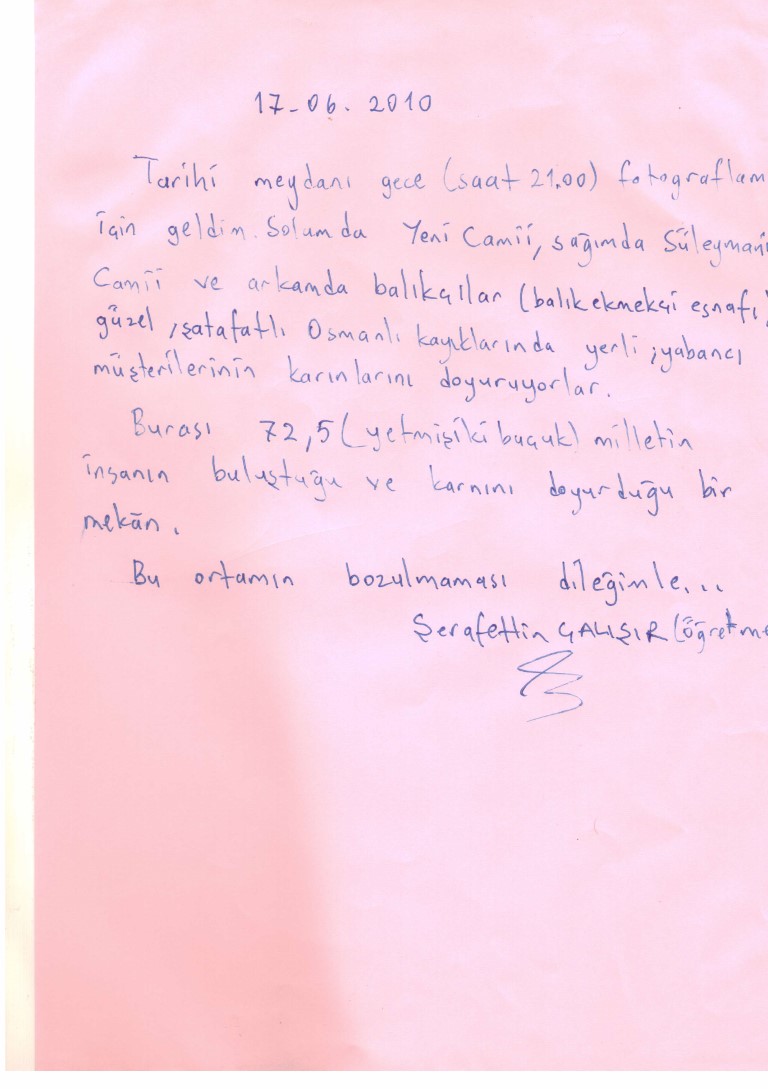 17-06. 2010
Tarihi meydanı gece (saat 21.00) fotograflam
için geldim. Solumda Yeni Camii, sağımda Süleymani
Camii ve arkamda balıkçılar (balıkekmekçi eşnafı)
güzel, şatafatlı Osmanlı kayıklarında yerli, yabancı
müşterilerinin karınlarını doyuruyorlar.
Burası 72,5 (yetmişiki buçuk) milletin
insanın buluştuğu ve karnını doyurduğu bir
mekān.
Bu ortamın bozulmaması dileğimle...
Şerafettin ÇALIŞIR (öğretme